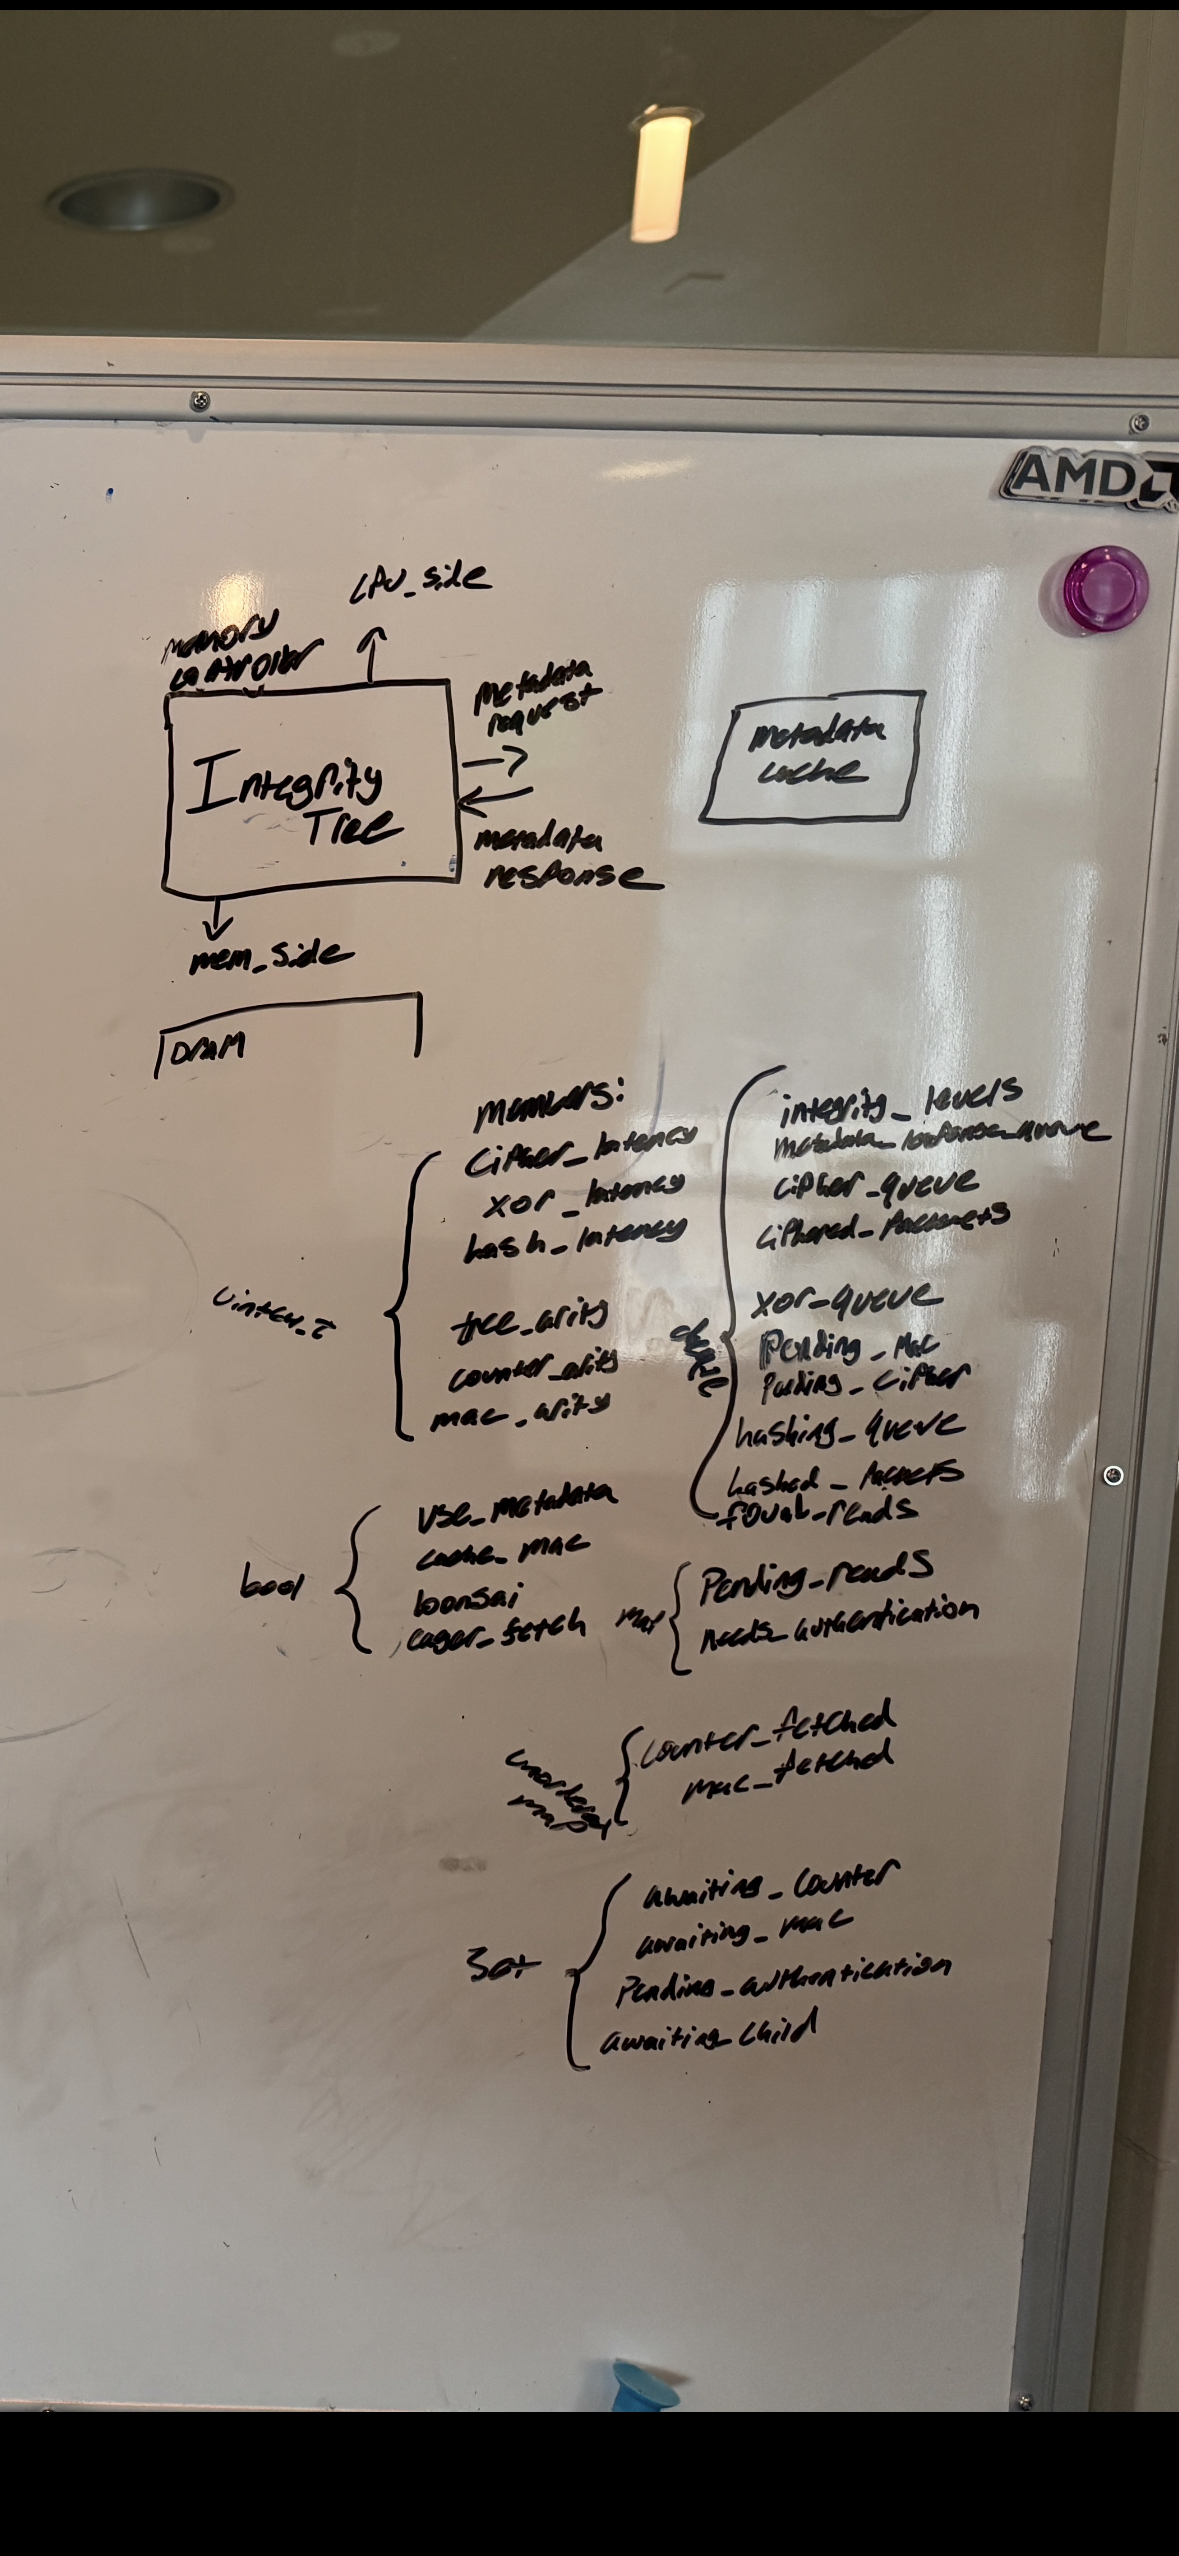 AMD
CPU_side
memory
controller
metadata
request
Integrity
Tree
metadata
cache
metadata
response
mem_side
DRAM
members:
cipher_latency
xor_latency
hash_latency
tree_arity
counter_arity
mac_arity
integrity_levels
metadata_response_queue
cipher_queue
ciphered_packets
xor_queue
pending_mac
pending_cipher
hashing_queue
hashed_packets
bool
use_metadata
cache_mac
bonsai
eager_fetch
map
pending_reads
needs_authentication
unordered
map
counter_fetched
mac_fetched
set
awaiting_counter
awaiting_mac
pending_authentication
awaiting_child